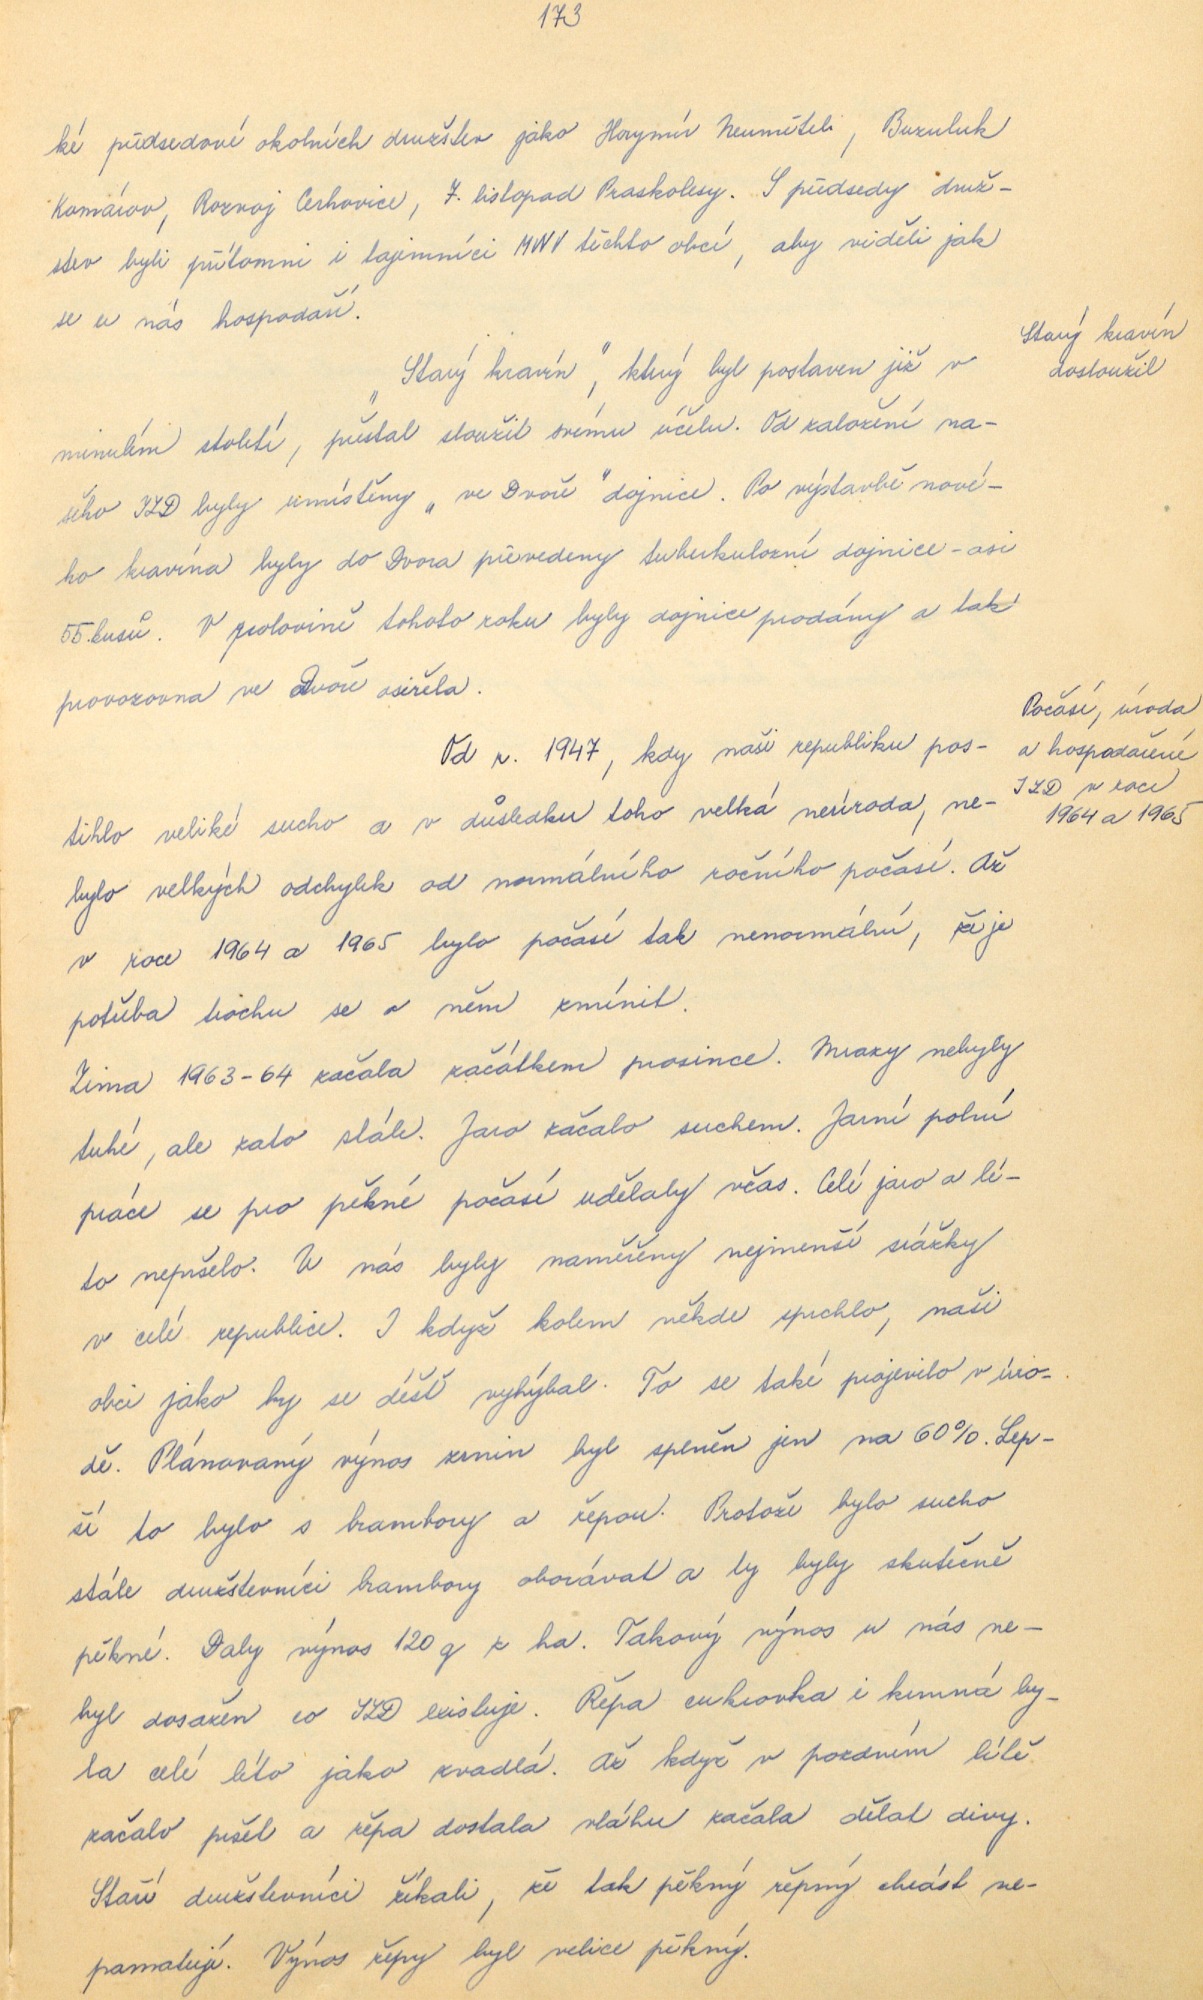 173
ké předsedové okolních družstev jako Horymír Neuměteli, Buzuluk
Komárov, Rozvoj Cerhovice, 7. listopad Praskolesy. S předsedy druž-
stev byli přítomni i tajemníci MNV těchto obcí, aby viděli jak
se u nás hospodaří.
Starý kravín
dosloužil
„Starý kravín", který byl postaven již v
minulém století, přestal sloužit svému účelu. Od založení na-
šeho JZD byly umístěny „ve Dvoře" dojnice. Po výstavbě nové-
ho kravína byly do Dvora převedeny tuberkulozní dojnice - asi
55. kusů. V polovině tohoto roku byly dojnice prodány a tak
provozovna ve Dvoře osiřela.
Počásí, úroda
a hospodaření
JZD v roce
1964 a 1965
Od r. 1947, kdy naši republiku pos-
tihlo veliké sucho a v důsledku toho velká neúroda, ne-
bylo velkých odchylek od normálního ročního počasí. Až
v roce 1964 a 1965 bylo počásí tak nenormální, že je
potřeba trochu se o něm zmínit.
Zima 1963-64 začala začátkem prosince. Mrazy nebyly
tuhé, ale zato stálé. Jaro začalo suchem. Jarní polní
práce se pro pěkné počásí udělaly včas. Celé jaro a lé-
to nepršelo. U nás byly naměřeny nejmenší srážky
v celé republice. I když kolem někde sprchlo, naši
obci jako by se déšť vyhýbal. To se také projevilo v úro-
dě. Plánovaný výnos zrnin byl splněn jen na 60%. Lep-
ší to bylo s brambory a řepou. Protože bylo sucho
stále družstevníci brambory oborávat a ty byly skutečně
pěkné. Daly výnos 120 q z ha. Takový výnos u nás ne-
byl dosažen co JZD existuje. Řepa cukrovka i krmná by-
la celé léto jako zvadlá. Až když v pozdním létě
začalo pršet a řepa dostala vláhu začala dělat divy.
Staří družstevníci říkali, že tak pěkný řepný chrást ne-
pamatují. Výnos řepy byl velice pěkný.